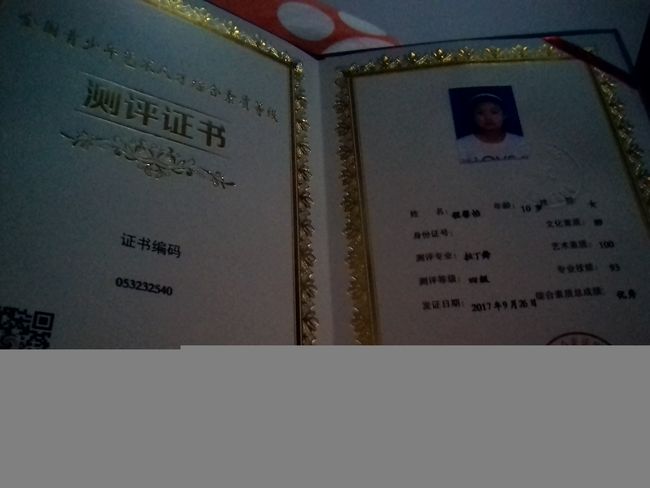 全国青少年艺术人才综合素质等级
测评证书
证书编码
053232540
姓 名： 年龄：10岁 性 别：女
身份证号： 文化素质：
测评专业：拉丁舞 艺术素质：100
测评等级：四级 专业技能：95
发证日期：2017年9月26日 综合素质总成绩：优秀